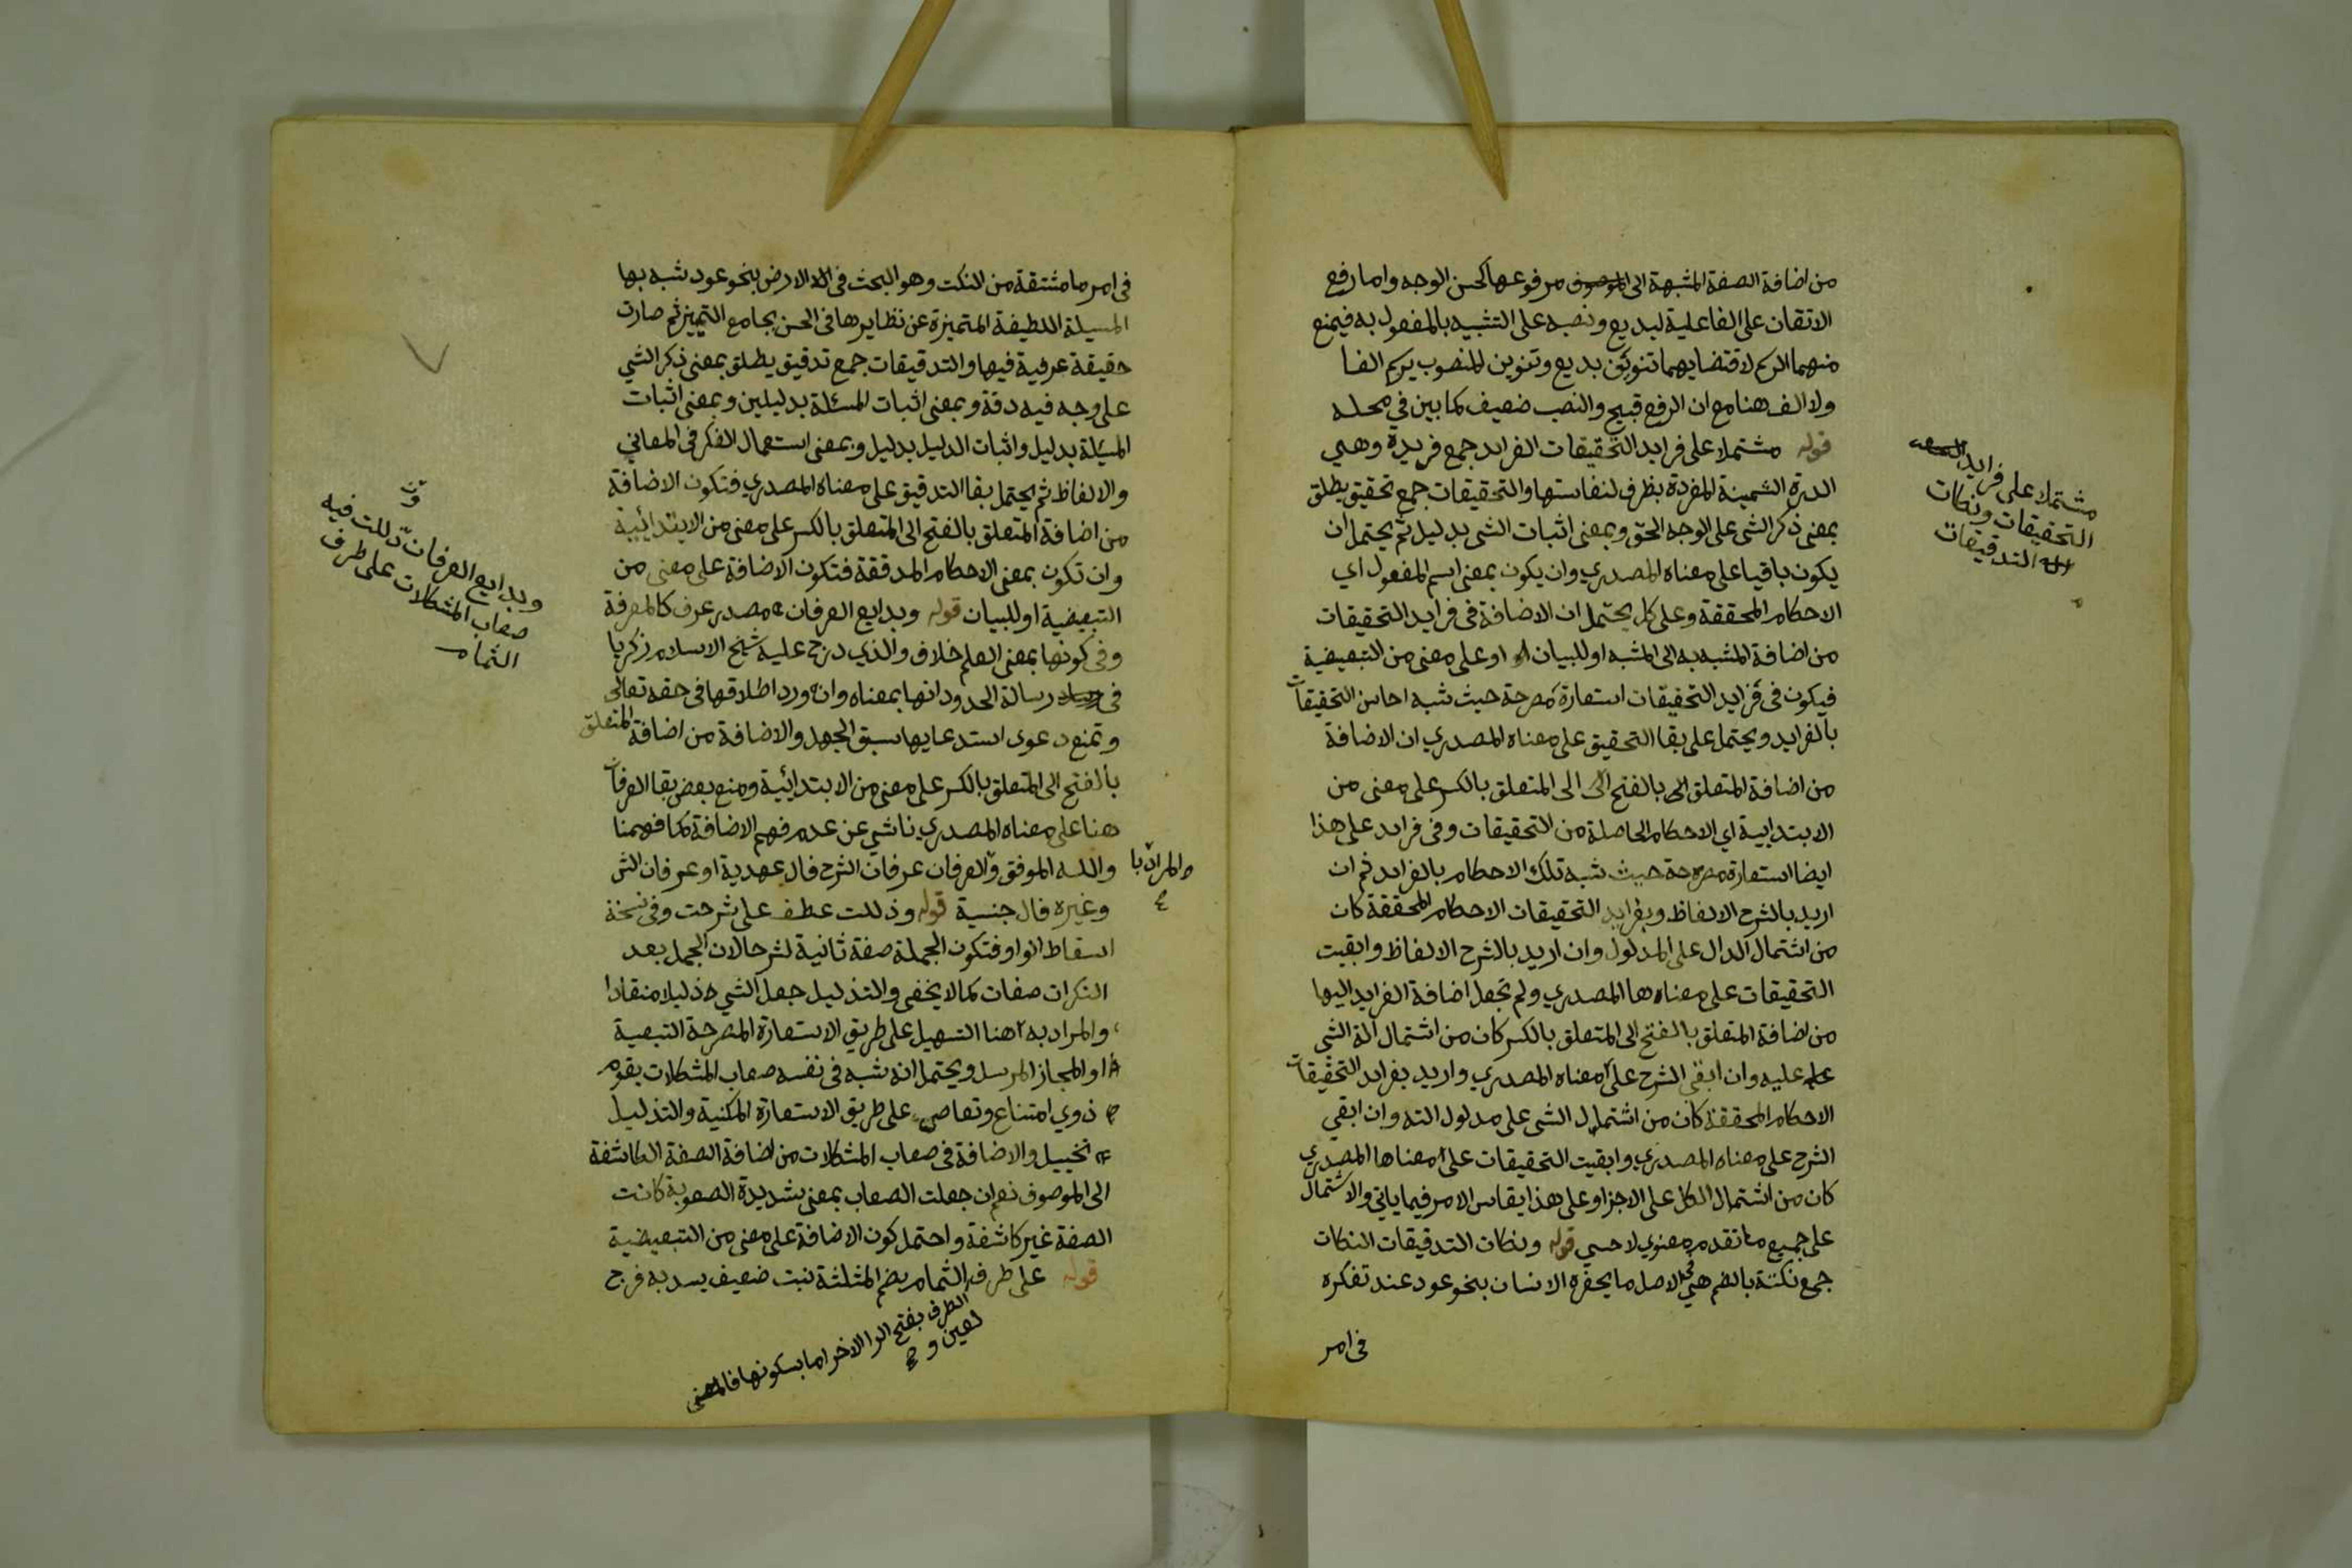 من اضافة الصفة المشبهة الى الموصوف مرفوعها كحسن الوجه واما رفع
الاتقان على الفاعلية لبديع ونصبه على التشبيه بالمفعول به فيمنع
منهما الرسم لاقتضايهما تنوين بديع وتنوين المنصوب يرسم الفا
ولا الف هنا مع ان الرفع قبيح والنصب ضعيف كما بين في محله
قوله مشتملا على فرايد التحقيقات الفرايد جمع فريدة وهي
الدرة الثمينة المفردة بظرف لنفاستها والتحقيقات جمع تحقيق يطلق
بمعنى ذكر الشي على الوجه الحق وبمعنى اثبات الشي بدليل ثم يحتمل ان
يكون باقيا على معناه المصدري وان يكون بمعنى اسم المفعول اي
الاحكام المحققة وعلى كل يحتمل ان الاضافة فى فرايد التحقيقات
من اضافة المشبه به الى المشبه او للبيان او على معنى من التبعيضية
فيكون فى فرايد التحقيقات استعارة مصرحة حيث شبه احاسن التحقيقات
بالفرايد ويحتمل على بقا التحقيق على معناه المصدري ان الاضافة
من اضافة المتعلق الى بالفتح الى الى المتعلق بالكسر على معنى من
الابتدايية اي الاحكام الحاصلة من التحقيقات وفى فرايد على هذا
ايضا استعارة مصرحة حيث شبه تلك الاحكام بالفرايد ثم ان
اريد بالشرح الالفاظ وبفرايد التحقيقات الاحكام المحققة كان
من اشتمال الدال على المدلول وان اريد بالشرح الالفاظ وابقيت
التحقيقات على معناه ها المصدري ولم تجعل اضافة الفرايد اليها
من اضافة المتعلق بالفتح الى المتعلق بالكسر كان من اشتمال الة الشي
عليه وان ابقى الشرح على معناه المصدري واريد بفرايد التحقيقات
الاحكام المحققة كان من اشتمال الشي على مدلول الته وان ابقي
الشرح على معناه المصدري وابقيت التحقيقات على معناها المصدري
كان من اشتمال الكل على الاجزا وعلى هذا يقاس الامر فيما ياتي والاشتمال
على جميع ما تقدم معنوي لا حسي قوله ونكات التدقيقات النكات
جمع نكتة بالضم هي فى الاصل ما يحفره الانسان بنحو عود عند تفكره
فى امر
مشتملا على فرايد
التحقيقات ونكات
التدقيقات
فى امر ما مشتقة من النكت وهو البحث فى الارض بنحو عود شبه بها
المسيلة اللطيفة المتميزة عن نظايرها فى الحسن بجامع التمييز ثم صارت
حقيقة عرفية فيها والتدقيقات جمع تدقيق يطلق بمعنى ذكر الشي
على وجه فيه دقة وبمعنى اثبات المسئلة بدليلين وبمعنى اثبات
المسيلة بدليل واثبات الدليل بدليل وبمعنى استعمال الفكر فى المعاني
والالفاظ ثم يحتمل بقا التدقيق على معناه المصدري فتكون الاضافة
من اضافة المتعلق بالفتح الى المتعلق بالكسر على معنى من الابتدائيية
وان تكون بمعنى الاحكام المدققة فتكون الاضافة على معنى من
التبعيضية او للبيان قوله وبدايع العرفان مصدر عرف كالمعرفة
وفى كونها بمعنى العلم خلاف والذي درج عليه شيخ الاسلام زكريا
فى رسالة الحدود انها بمعناه وانه ورد اطلاقها فى حقه تعالى
وتمنع دعوى استدعايها سبق الجهل والاضافة من اضافة المتعلق
بالفتح الى المتعلق بالكسر على معنى من الابتدائية ومنع بعض بقا العرفان
هنا على معناه المصدري ناشي عن عدم فهم الاضافة كما فهمنا
والله الموفق والعرفان عرفان الشرح فال عهدية او عرفان الش
وغيره فال جنسية قوله وذللت عطف على شرحت وفى نسخة
اسقاط الواو فتكون الجملة صفة ثانية لشرحا لان الجمل بعد
النكرات صفات كما لا يخفى والتذليل جعل الشي ذليلا منقادا
والمراد به هنا التسهيل على طريق الاستعارة المصرحة التبعية
او المجاز المرسل ويحتمل انه شبه فى نفسه صعاب المشكلات بقوم
ذوي امتناع وتعاصي على طريق الاستعارة المكنية والتذليل
تخييل والاضافة فى صعاب المشكلات من اضافة الصفة الكاشفة
الى الموصوف نعم ان جعلت الصعاب بمعنى شديدة الصعوبة كانت
الصفة غير كاشفة واحتمل كون الاضافة على معنى من التبعيضية
قوله على طرف الثمام بضم المثلثة نبت ضعيف يسد به فرج
والمراد با
وبدايع العرفان ذللت فيه
صعاب المشكلات على طرف
الثمام
الطرف بفتح الرا الاخر اما بسكونها فالمعنى
لعين و